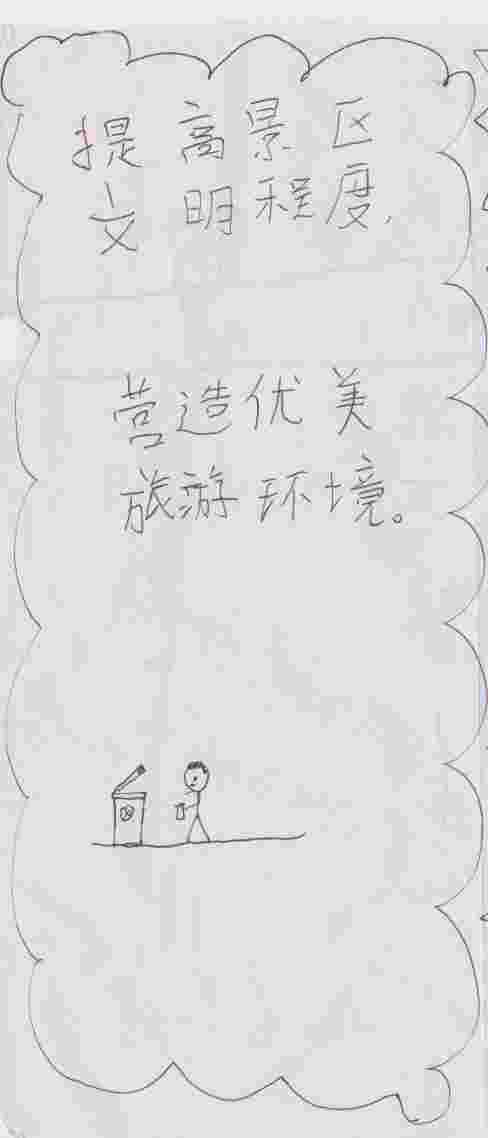 提高景区
文明程度,
营造优美
旅游环境。